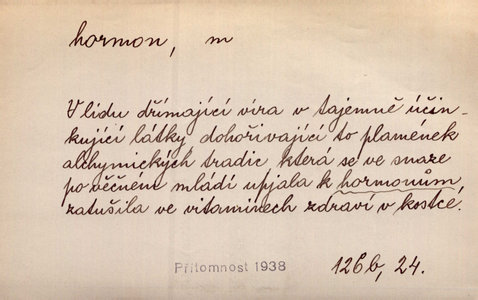 hormon, m
V lidu dřímající víra v tajemně účin-
kující látky, dohořívající to plamének
alchymických tradic která se ve snaze
po věčném mládí upjala k hormonům,
zatušila ve vitaminech zdraví v kostce.
Přítomnost 1938
126b, 24.